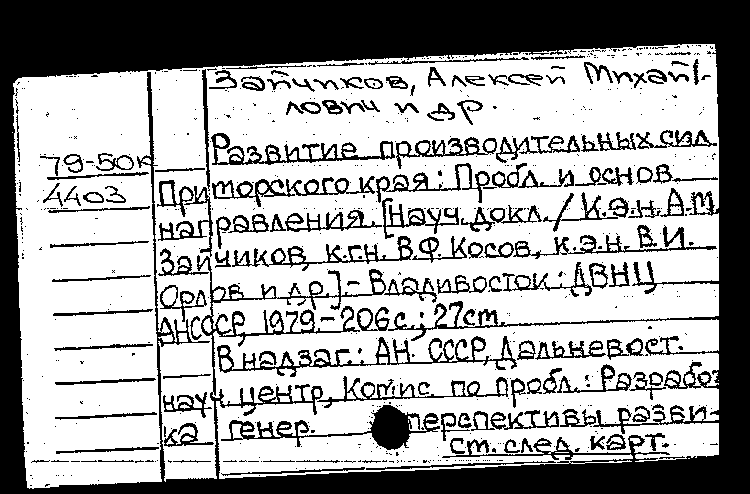 Зайчиков, Алексей Михай-
лович и др.
79-50к
Развитие производительных сил
4403
Приморского края: Пробл. и основ.
направления. [Науч. докл. / К.э.н. А.М.
Зайчиков, к.г.н. В.Ф. Косов, к.э.н. В.И.
Орлов и др.].- Владивосток: ДВНЦ
АН СССР, 1979.-206 с.; 27 см.
В надзаг.: АН СССР, Дальневост.
науч. центр, Комис. по пробл.: Разработ
ка генер. перспективы разви-
см. след. карт.